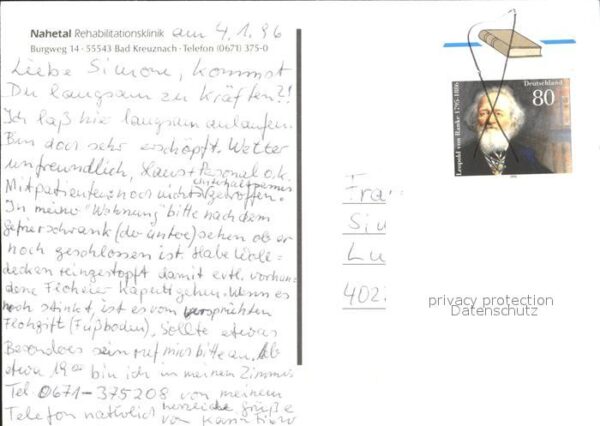 Nahetal Rehabilitationsklinik am 4.1.96
Burgweg 14 · 55543 Bad Kreuznach · Telefon (0671) 375-0
Liebe Simone, kommst
Du langsam zu Kräften?!
Ich laß hie langsam anlaufen.
Bin doch sehr erschöpft. Wetter
unfreundlich, Haus + Personal o.k.
Mitpatienten noch nichts
getroffen.
In meine "Wohnung" bitte nach dem
Gefrierschrank (der untere) sehen ob er
noch geschlossen ist. Habe Woll=
decken reingestopft damit evtl. vorhan=
dene Flohviecher kaputtgehen. Wenn es
noch stinkt, ist es vom versprühten
Flohgift (Fußboden). Sollte etwas
Besonderes sein ruf mich bitte an. Ab
etwa 19 00 bin ich in meinem Zimmer
Tel 0671-375208 von meinem
Telefon natürlich herzliche Grüße
von
Deutschland
80
Leopold von Ranke · 1795-1886
Fra
Si
Lu
402
privacy protection
Datenschutz